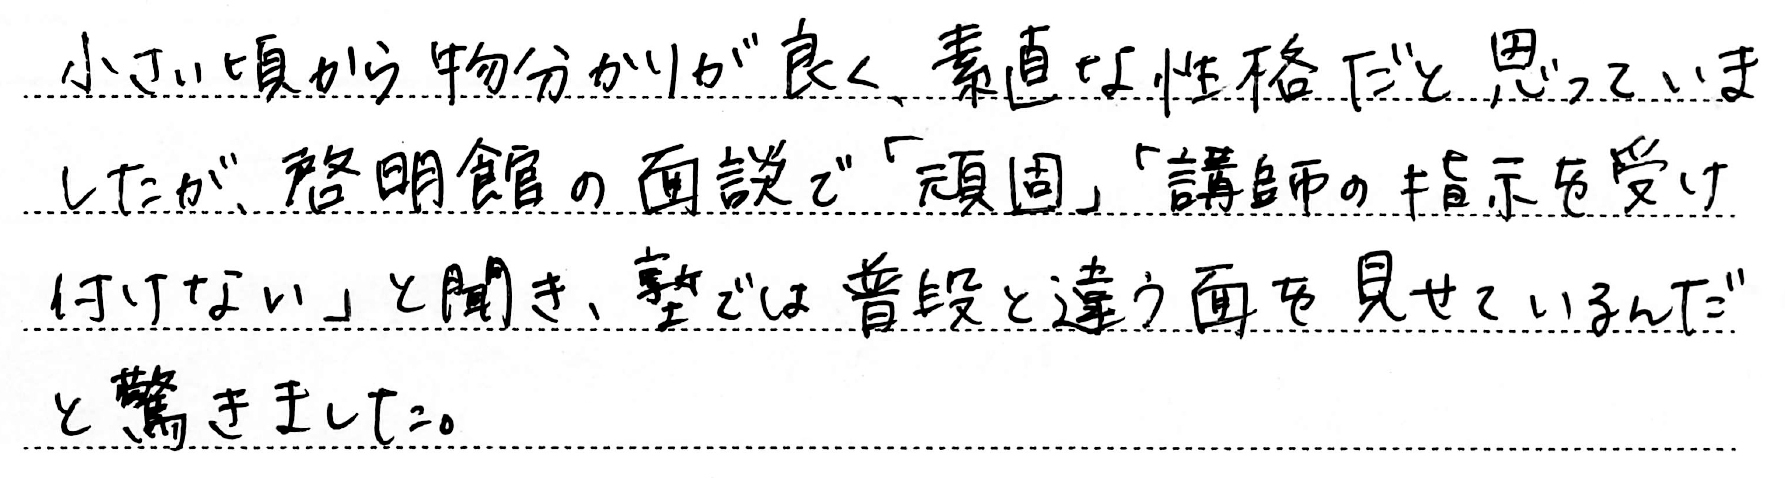 小さい頃から物分かりが良く、素直な性格だと思っていま
したが、啓明館の面談で「頑固」「講師の指示を受け
付けない」と聞き、塾では普段と違う面を見せているんだ
と驚きました。